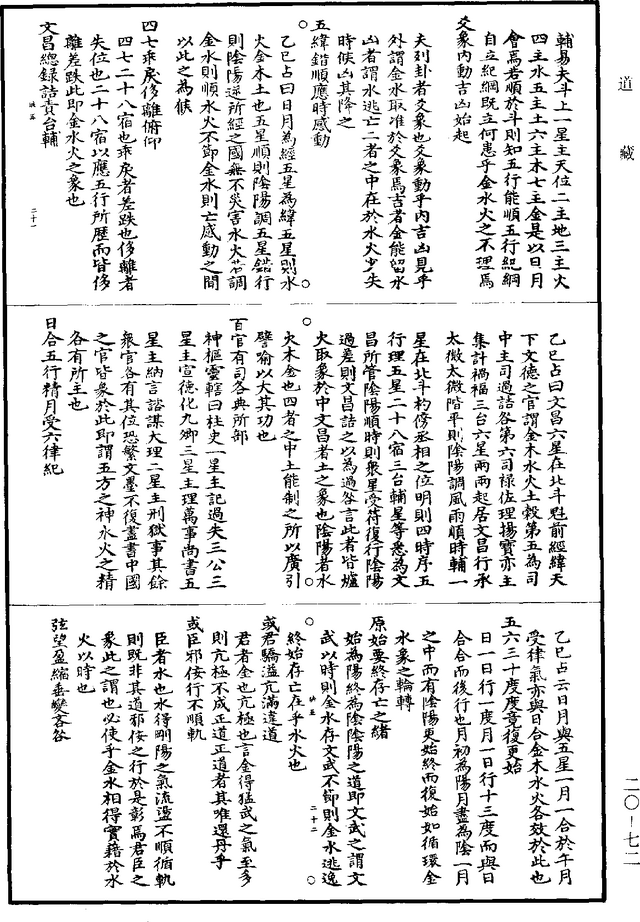 道藏
輔易夫斗上一星主天位二主地三主火
四主水五主土六主木七主金是以日月
會焉若順於斗則知五行能順五行紀綱
自立紀綱既立何患乎金水火之不理焉
爻象內動吉凶始起
夫列卦者爻象也爻象動乎內吉凶見乎
外謂金水取準於爻象焉吉者金能留水
凶者謂水逃亡二者之中在於水火少失
時候凶其降之
五緯錯順應時感動
乙巳占曰日月為經五星為緯五星則水
火金木土也五星順則陰陽調五星錯行
則陰陽逆所經之國無不災害水火若調
金水則順水火不節金水則亡感動之間
以此之為候
四七乖戾侈離俯仰
四七二十八宿也乖戾者差跌也侈離者
失位也二十八宿以應五行所歷而皆侈
離差跌此即金水火之象也
文昌總錄詰責台輔
二十一
乙巳占曰文昌六星在北斗魁前經緯天
下文德之官謂金木水火土穀第五為司
中主司過詰咎第六司祿佐理揚寶亦主
集計禍福三台六星兩兩起居文昌行承
太微太微階平則陰陽調風雨順時輔一
星在北斗杓傍丞相之位明則四時序五
行理五星二十八宿三台輔星等悉為文
昌所管陰陽順時則衆星受符復行陰陽
過差則文昌詰之以為過咎言此者皆爐
火取象於中文昌者土之象也陰陽者水
火木金也四者之中土能制之所以廣引
譬喻以大其功也
百官有司各典所部
神樞靈轄曰柱史一星主記過失三公三
星主宣德化九卿三星主理萬事尚書五
星主納言諮謀大理二星主刑獄事其餘
衆官各有其位恐繁文墨不復盡書中國
之官皆象於此即謂五方之神水火之精
各有所主也
日合五行精月受六律紀
乙巳占云日月與五星一月一合於午月
受律氣亦與日合金木水火各效於此也
五六三十度度竟復更始
日一日行一度月一日行十三度而與日
合合而後行也月初為陽月盡為陰一月
之中而有陰陽更始終而復始如循環金
水象之輪轉
原始要終存亡之緒
始為陽終為陰陰陽之道即文武之謂文
武以時則金水存文武不節則金水逃逸
終始存亡在乎水火也
二十二
或君驕溢亢滿違道
君者金也亢極也言金得猛武之氣至多
則亢極不成正道正道者其唯還丹乎
或臣邪佞行不順軌
臣者水也水得剛陽之氣流盪不順循軌
則既非其道邪佞之行於是彰焉君臣之
象此之謂也必使乎金水相得實藉於水
火以時也
弦望盈縮垂變吝咎
二〇-七二